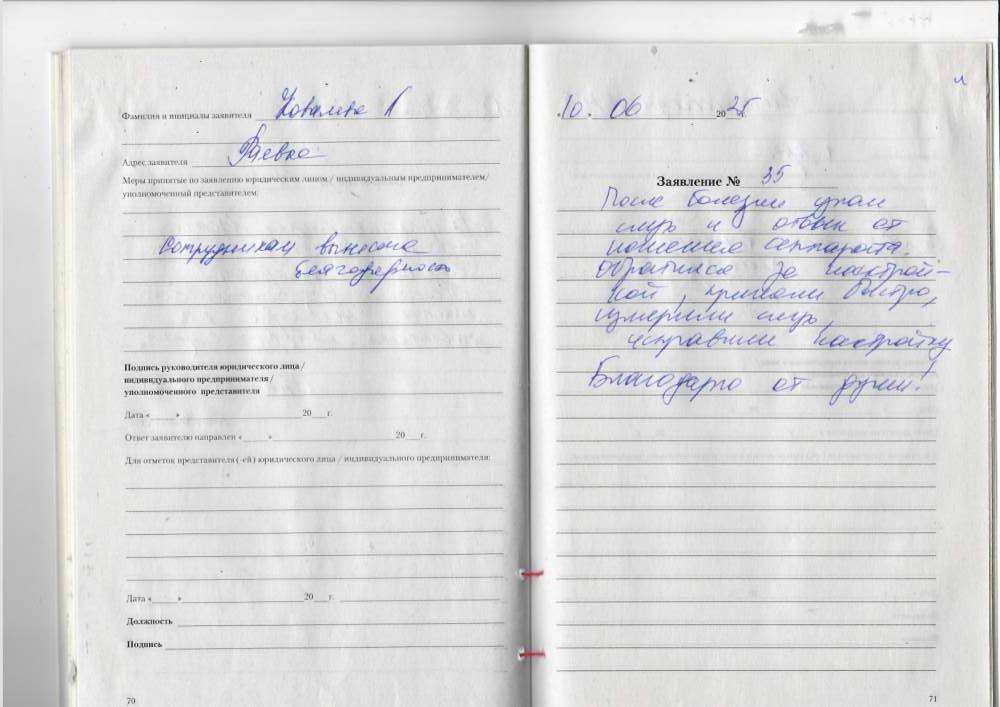 Фамилия и инициалы заявителя Ковалева Л
Адрес заявителя Раевка
Меры принятые по заявлению юридическим лицом / индивидуальным предпринимателем/
уполномоченный представителем:
Сотрудникам вынесена
благодарность
Подпись руководителя юридического лица /
индивидуального предпринимателя /
уполномоченного представителя
Дата «____» 20__г.
Ответ заявителю направлен «____» 20__г.
Для отметок представителя (-ей) юридического лица / индивидуального предпринимателя:
Дата «____» 20__г.
Должность
Подпись
70
10. 06 2025г.
Заявление № 35
После болезни упал
слух и отвык от
ношения аппарата.
Обратился за настрой-
кой, приняли быстро,
измерили слух,
исправили настройку
Благодарю от души!
71